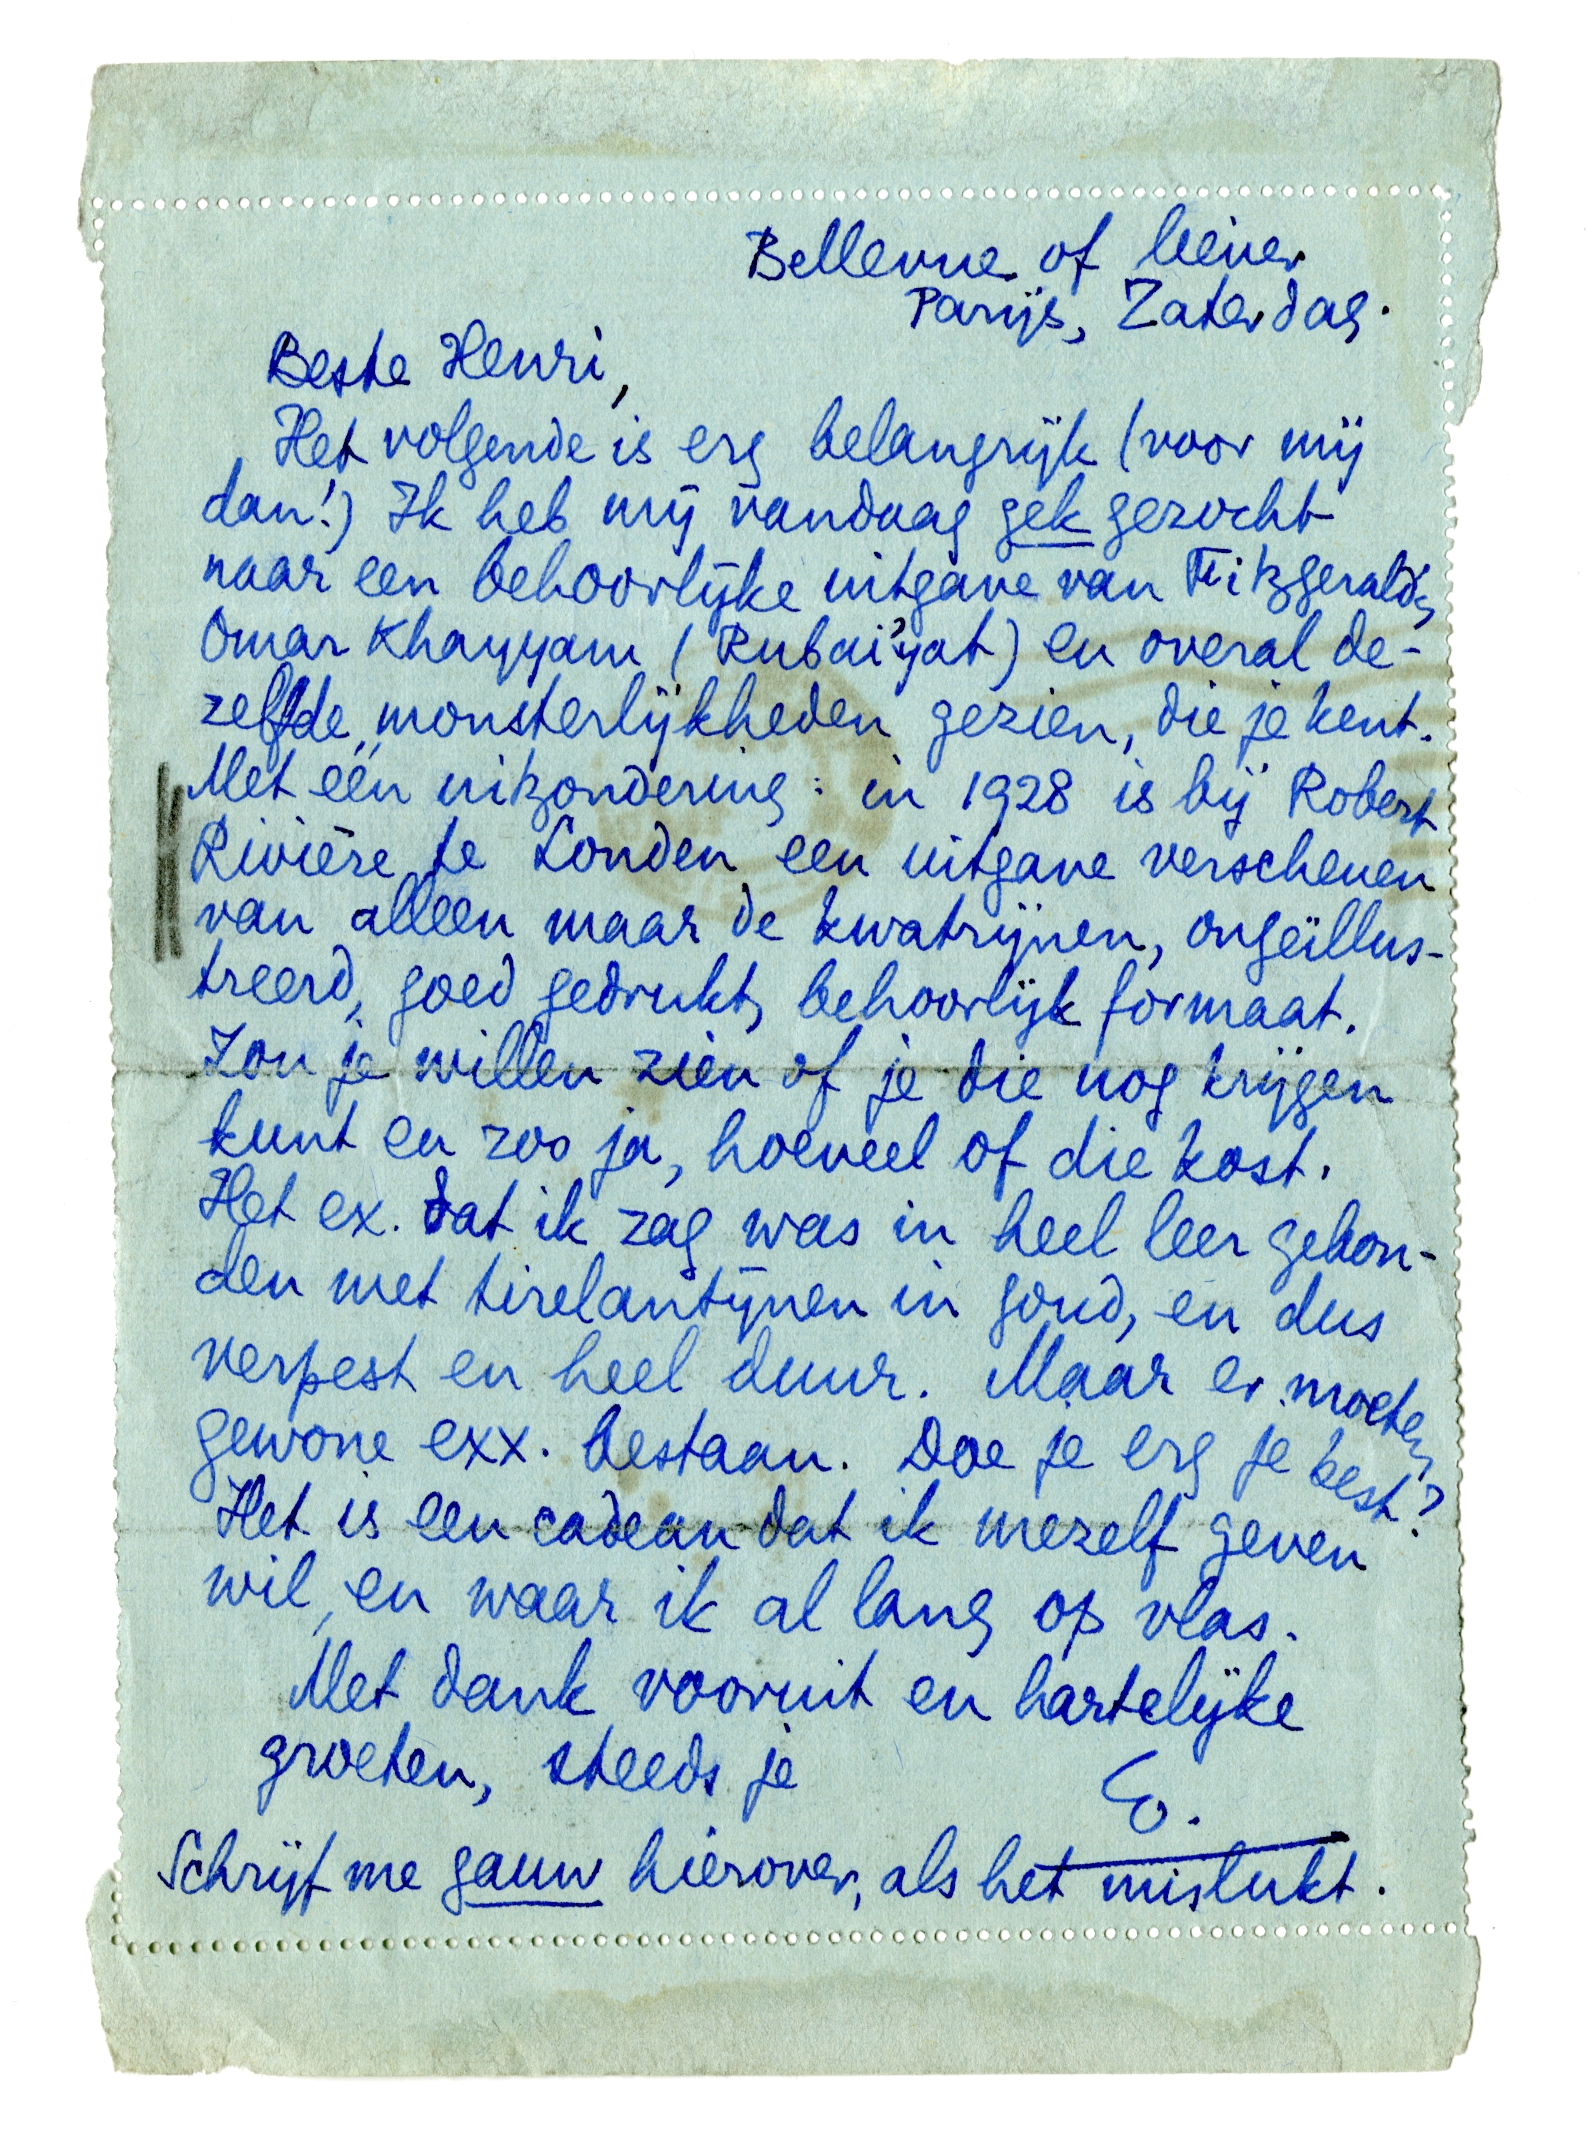 Bellevue of liever
Parijs, Zaterdag.
Beste Henri,
Het volgende is erg belangrijk (voor mij
dan!) Ik heb mij vandaag gek gezocht
naar een behoorlijke uitgave van Fitzgerald's
Omar Khayyam (Rubai'yat) en overal de-
zelfde monsterlijkheden gezien, die je kent.
Met één uitzondering: in 1928 is bij Robert
Rivière te Londen een uitgave verschenen
van alleen maar de kwatrijnen, ongeïllus-
treerd, goed gedrukt, behoorlijk formaat.
Zou je willen zien of je die nog krijgen
kunt en zoo ja, hoeveel of die kost.
Het ex. dat ik zag was in heel leer gebon-
den met tirelantijnen in goud, en dus
verpest en heel duur. Maar er moeten
gewone exx. bestaan. Doe je erg je best?
Het is een cadeau dat ik mezelf geven
wil, en waar ik al lang op vlas.
Met dank vooruit en hartelijke
groeten, steeds je
E.
Schrijf me gauw hierover, als het mislukt.